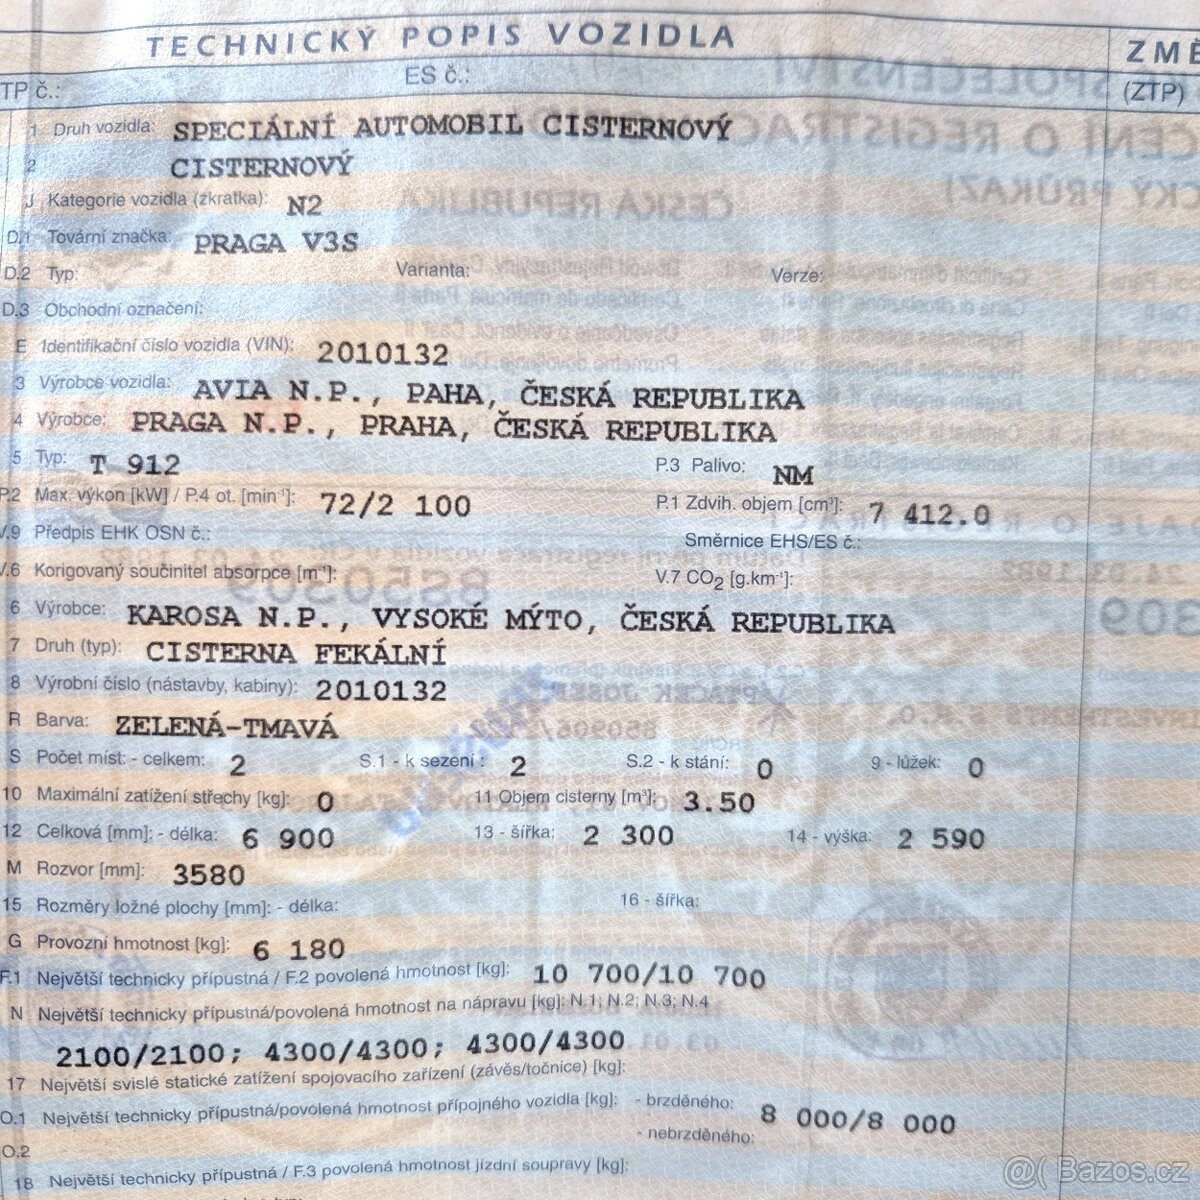 TECHNICKÝ POPIS VOZIDLA
ZMĚ
TP č.: ES č.: (ZTP)
1 Druh vozidla: SPECIÁLNÍ AUTOMOBIL CISTERNOVÝ
2 CISTERNOVÝ
J Kategorie vozidla (zkratka): N2
D.1 Tovární značka: PRAGA V3S
D.2 Typ: Varianta: Verze:
D.3 Obchodní označení:
E Identifikační číslo vozidla (VIN): 2010132
3 Výrobce vozidla: AVIA N.P., PAHA, ČESKÁ REPUBLIKA
4 Výrobce: PRAGA N.P., PRAHA, ČESKÁ REPUBLIKA
5 Typ: T 912 P.3 Palivo: NM
P.2 Max. výkon [kW] / P.4 ot. [min⁻¹]: 72/2 100 P.1 Zdvih. objem [cm³]: 7 412.0
V.9 Předpis EHK OSN č.: Směrnice EHS/ES č.:
V.6 Korigovaný součinitel absorpce [m⁻¹]: V.7 CO₂ [g.km⁻¹]:
6 Výrobce: KAROSA N.P., VYSOKÉ MÝTO, ČESKÁ REPUBLIKA
7 Druh (typ): CISTERNA FEKÁLNÍ
8 Výrobní číslo (nástavby, kabiny): 2010132
R Barva: ZELENÁ-TMAVÁ
S Počet míst: - celkem: 2 S.1 - k sezení : 2 S.2 - k stání: 0 9 - lůžek: 0
10 Maximální zatížení střechy [kg]: 0 11 Objem cisterny [m³]: 3.50
12 Celková [mm]: - délka: 6 900 13 - šířka: 2 300 14 - výška: 2 590
M Rozvor [mm]: 3580
15 Rozměry ložné plochy [mm]: - délka: 16 - šířka:
G Provozní hmotnost [kg]: 6 180
F.1 Největší technicky přípustná / F.2 povolená hmotnost [kg]: 10 700/10 700
N Největší technicky přípustná/povolená hmotnost na nápravu [kg]: N.1; N.2; N.3; N.4
2100/2100; 4300/4300; 4300/4300
17 Největší svislé statické zatížení spojovacího zařízení (závěs/točnice) [kg]:
O.1 Největší technicky přípustná/povolená hmotnost přípojného vozidla [kg]: - brzděného: 8 000/8 000
O.2 - nebrzděného:
18 Největší technicky přípustná / F.3 povolená hmotnost jízdní soupravy [kg]:
@( Bazos.cz